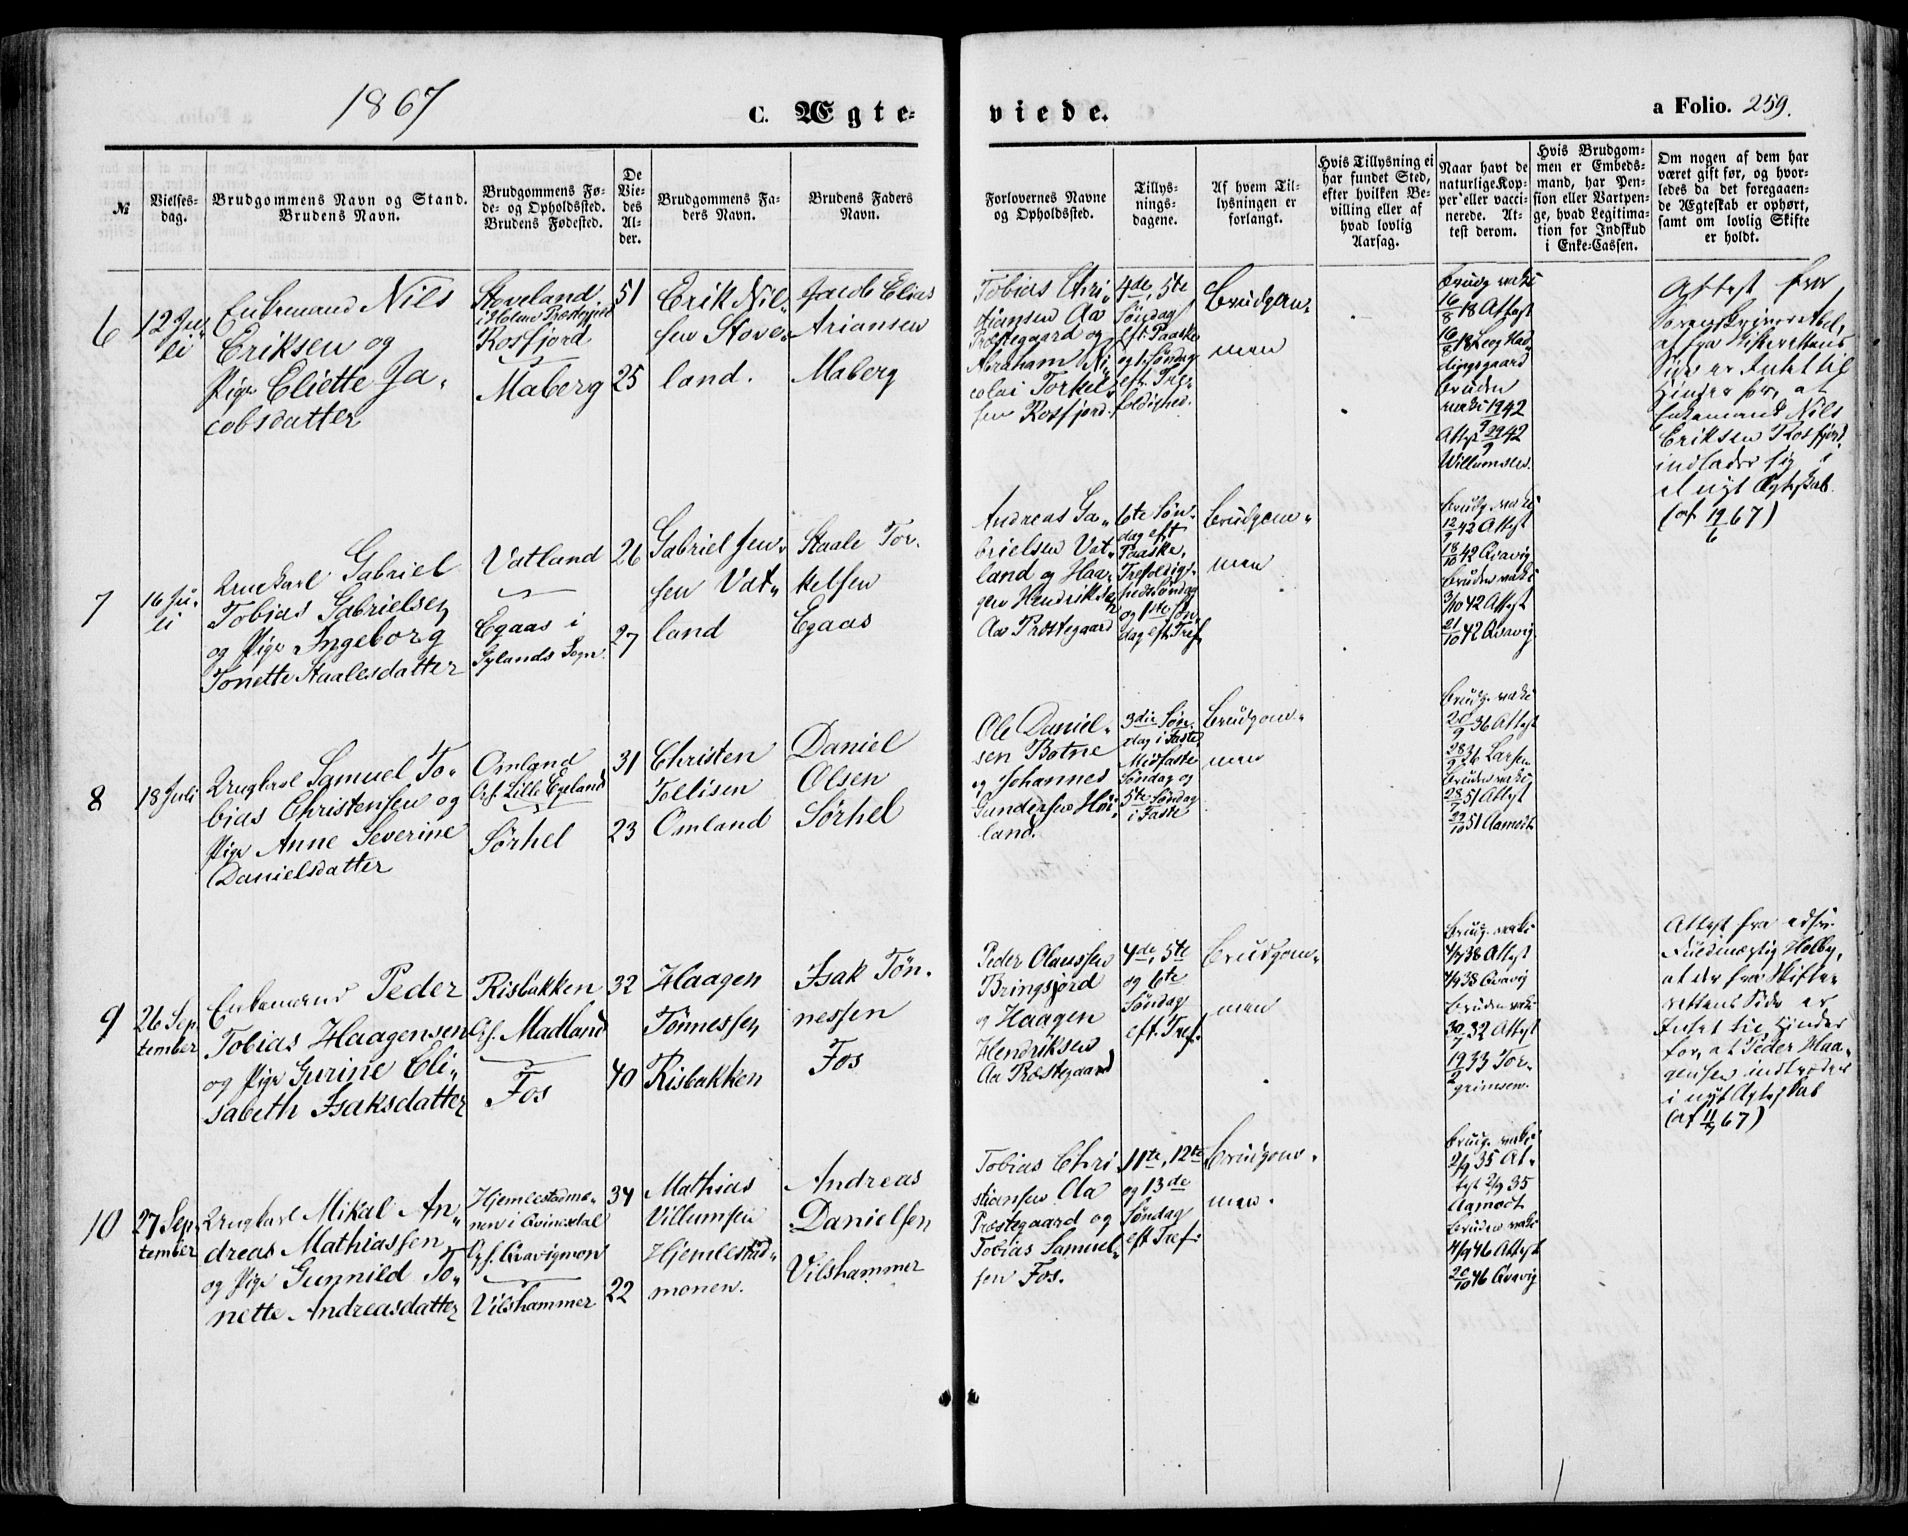 1867
C. Ægte-
viede.
a Folio. 259.
№
Vielses-
dag.
Brudgommens Navn og Stand.
Brudens Navn.
Brudgommens Fø-
de- og Opholdssted.
Brudens Fødested.
De
Vie-
des
Al-
der.
Brudgommens Fa-
ders Navn.
Brudens Faders
Navn.
Forlovernes Navne
og Opholdssted.
Tillys-
nings-
dagene.
Af hvem Til-
lysningen er
forlangt.
Hvis Tillysning ei
har fundet Sted,
efter hvilken Be-
villing eller af
hvad lovlig
Aarsag.
Naar havt de
naturlige Kop-
per eller vacci-
nerede. At-
test derom.
Hvis Brudgom-
men er Embeds-
mand, har Pen-
sion eller Vartpen-
ge, hvad Legitima-
tion for Indskud
i Enke-Cassen.
Om nogen af dem har
været gift før, og hvor-
ledes da det foregaaen-
de Ægteskab er ophørt,
samt om lovlig Skifte
er holdt.
6
12 Ju-
li
Enkemand Nils
Eriksen og
Pige Eliette Ja-
cobsdatter
Stoveland
i Holme Præstegjeld
Rosfjord
Maberg
51
25
Erik Nil-
sen Stove-
land.
Jacob Elias
Ariansen
Maberg
Tobias Chri-
stiansen Aa
Præstegaard og
Abraham Ni-
colai Torkil-
sen Rosfjord.
4de, 5te
Søndag
eft. Paaske
og 1. Søndag
eft. Tre-
foldighed.
Brudgom-
men
Brudg. vakc
16/8 18 Attest
16/8 18
Bruden
vakc 19/9 42
Attest 29/9 42
Willumsen.
Attest fra
Sorenskriver Abel,
at fra Skifterettens
Side er Intet til
Hinder for, at
Enkemand Nils
Eriksen Rosfjord
indlader sig i
et nyt Ægteskab
(af 19/6 67)
7
16 Ju-
li
Ungkarl Gabriel
Tobias Gabrielsen
og Pige Ingeborg
Tonette Staalesdatter
Vatland
Egaas i
Gylands Sogn.
26
27
Gabriel Jen-
sen Vat-
land
Staale Tor-
kelsen
Egaas
Andreas Ga-
brielsen Vat-
land og Haa-
gen Hendriksen
Aa Præstegaard
6te Søn-
dag eft
Paaske,
Trefoldig-
hedssøndag
og 1ste Søn-
dag eft. Tref.
Brudgom-
men
Brudg. vakc
12/9 42 Attest
18/10 42 Qvavig
Bruden vakc
3/10 42 Attest
21/10 42 Qvavig
8
18 Juli
Ungkarl Samuel To-
bias Christensen og
Pige Anne Severine
Danielsdatter
Omland
Of. Lille Egeland
Sørhel
31
23
Christen
Tollisen
Omland
Daniel
Olsen
Sørhel
Ole Daniel-
sen Botne
og Johannes
Gundersen Høi-
land.
3die Søn-
dag i Faste,
Midfaste
Søndag og
5te Søndag
i Faste
Brudgom-
men
Brudg. vakc
20/9 36 Attest
28/9 36 Larsen
Bruden vakc
28/7 51 Attest
22/10 51 Aamodt.
9
26 Sep-
tember
Enkemand Peder
Tobias Haagensen
og Pige Gurine Eli-
sabeth Isaksdatter
Risbakken
Of. Madland
Fos
32
40
Haagen
Tønnessen
Risbakken
Isak Tøn-
nessen
Fos
Peder Olaussen
Bringsjord
og Haagen
Hendriksen
Aa Præstegaard
4de, 5te
og 6te
Søndag
eft. Tref.
Brudgom-
men
Brudg. vakc
4/9 38 Attest
4/9 38 Qvavig
Bruden vakc
30/7 32 Attest
19/2 33 Tor-
grimsen.
Attest fra edsv.
Fuldmægtig Holby,
at der fra Skifte-
rettens Side er
Intet til Hinder
for, at Peder Haa-
gensen indtræder
i nyt Ægteskab
(af 11/7 67)
10
27 Sep-
tember
Ungkarl Mikal An-
dreas Mathiassen
og Pige Gunnild To-
nette Andreasdatter
Hjemlestadmo-
nen i Qvinesdal
Of. Qvavigmon
Vilshammer
34
22
Mathias
Villumsen
Hjemlestad-
monen.
Andreas
Danielsen
Vilshammer
Tobias Chri-
stiansen Aa
Præstegaard og
Tobias Samuel-
sen Fos.
11te, 12te
og 13de
Søndag
eft Tref.
Brudgom-
men.
Brudg. vakc
2/9 35 At-
test 2/9 35
Aamodt
Bruden vakc
4/9 46 Attest
20/10 46 Qvavig